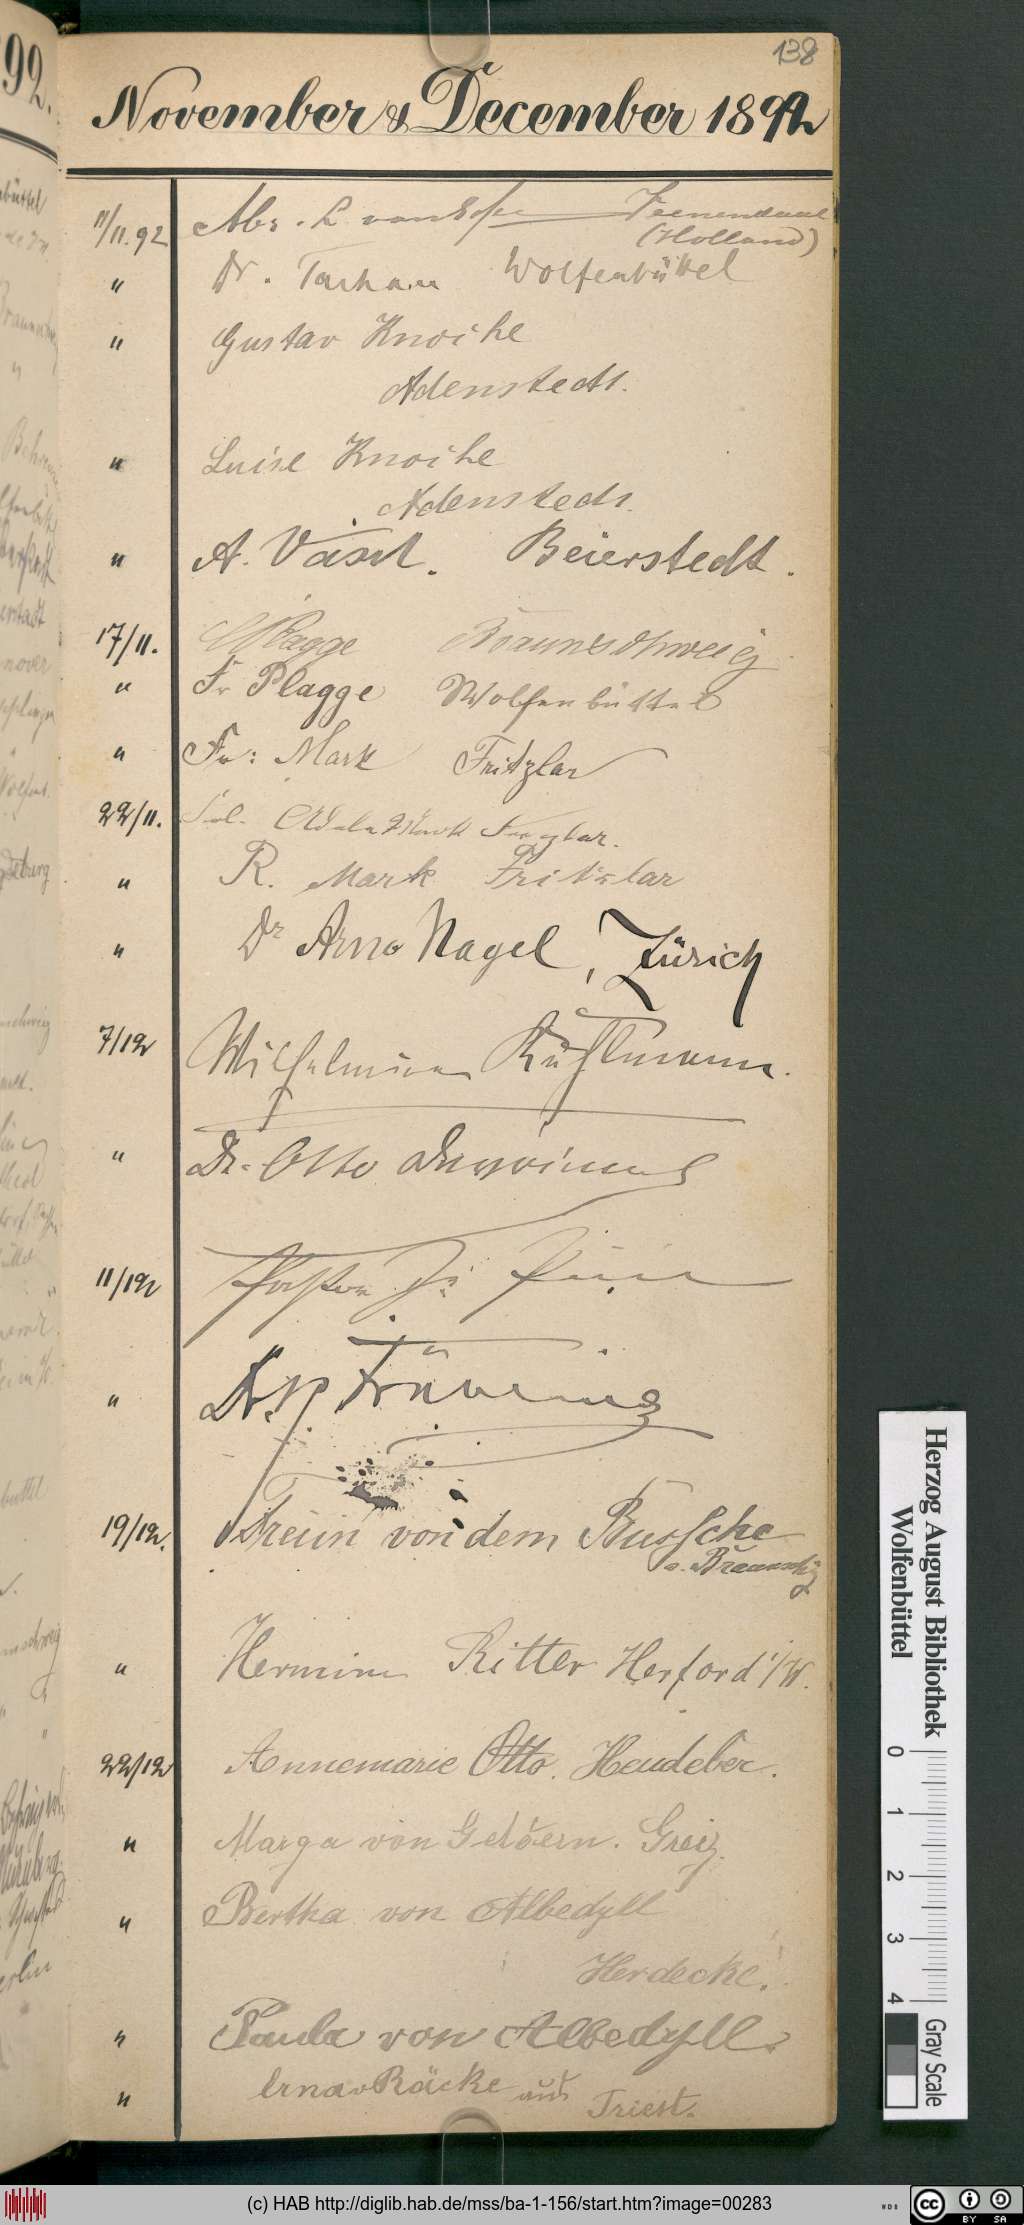 138
November & December 1892
11/11.92 Abr. L. van Veenendaal
(Holland)
" Dr. Wolfenbüttel
" Gustav Knoche
Adenstedt.
" Luise Knoche
Adenstedt.
" A. Vasel. Beierstedt.
17/11. Plagge Braunschweig
" Fr Plagge Wolfenbüttel
" Fr: Mark Fritzlar
22/11. Frl. Mark Fritzlar.
" R. Mark Fritzlar
" Dr Arno Nagel, Zürich
7/12 Wilhelmine Kuhlmann.
" Dr. Otto
11/12 Pastor
" Dr.
19/12. Freiin von dem Bussche
a. Braunschg
" Hermine Ritter Herford i/W.
22/12 Annemarie Otto. Heudeber.
" Marga von Geldern. Greiz.
" Bertha von Albedyll
Herdecke.
" Paula von Albedyll.
" Erna v Räcke aus Triest.
Herzog August Bibliothek
Wolfenbüttel
0 1 2 3 4
Gray Scale
(c) HAB http://diglib.hab.de/mss/ba-1-156/start.htm?image=00283
WDB
cc BY SA